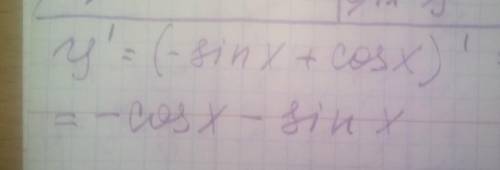 y' = (-sin x + cos x)' =
= - cos x - sin x